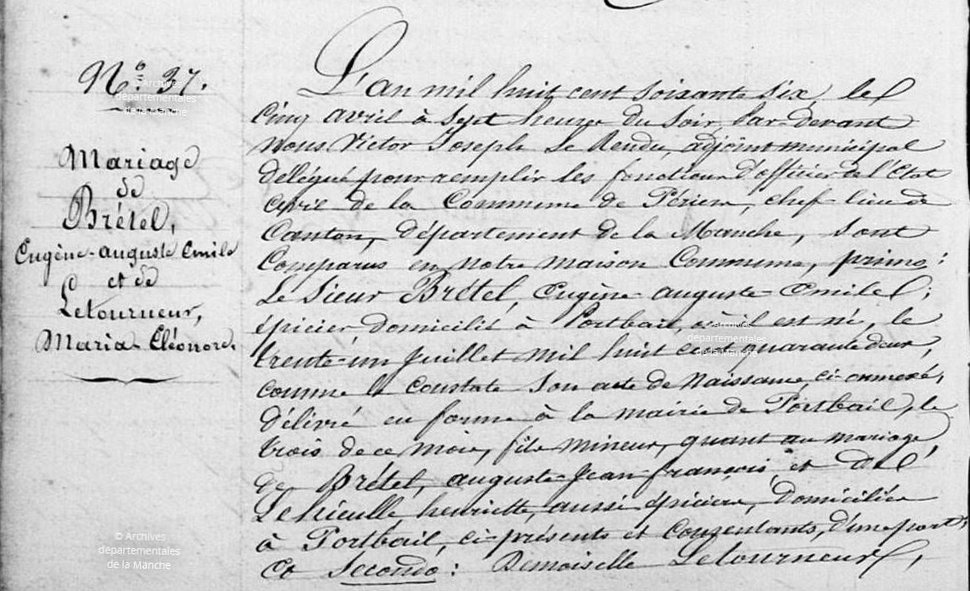 N.o 37.
Mariage
de
Brétel,
Eugène-auguste Emile
et de
Letourneur,
Maria-Eléonore.
L'an mil huit cent soixante six, le
Cinq avril à sept heures du soir, Par-devant
Nous Victor Joseph Le Rendu, adjoint municipal
délégué pour remplir les fonctions d'officier de l'Etat
Civil de la Commune de Périers, chef-lieu de
Canton, département de la Manche, sont
Comparus en notre maison Commune, primo:
Le Sieur Brétel, Eugène-auguste-Emile;
épicier domicilié à Portbail, où il est né, le
trente-un Juillet mil huit cent quarante deux,
comme le constate son acte de Naissance, ci-annexé,
délivré en forme à la mairie de Portbail, le
trois de ce mois, fils mineur, quant au mariage
de Brétel, auguste-Jean-françois et de
henriette, aussi épiciers, domiciliés
à Portbail, ci-présents et Consentants, d'une part;
Et Secondo: Demoiselle Letourneur,
© Archives
départementales
de la Manche